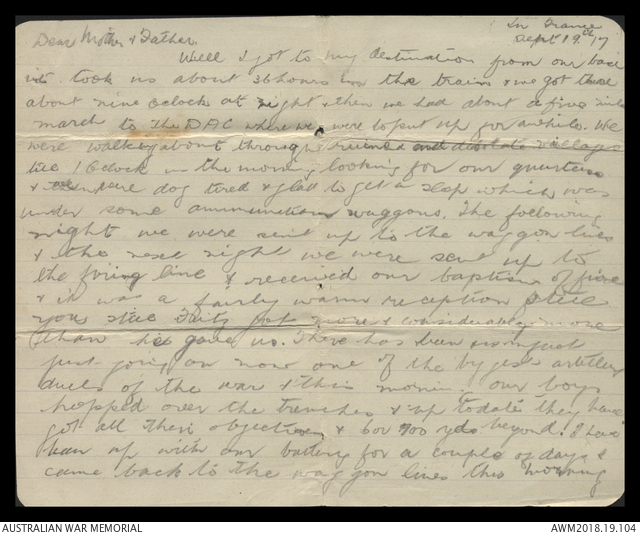 In France
Sept 19th 17
Dear Mother & Father
Well I got to my destination from our base
it took us about 36 hours in the train & we got there
about nine oclock at night & then we had about a five mile
march to the DAC where we were to put up for awhile. We
were walking about through ruined and desolate villages
till 1 Oclock in the morning looking for our quarters
& were dog tired & glad to get a sleep which was
under some ammunition waggons. The following
night we were sent up to the waggon lines
& the next night we were sent up to
the firing line & received our baptism of fire
& it was a fairly warm reception I tell
you still Fritz got more & considerably more
than he gave us. There has been & is just
just going on now one of the bygest artillery
duels of the war & this morning our boys
hopped over the trenches & up to date they have
got all their objectives & 600 yds beyond. I have
been up with our battery for a couple of days &
came back to the waggon lines this morning
AUSTRALIAN WAR MEMORIAL
AWM2018.19.104